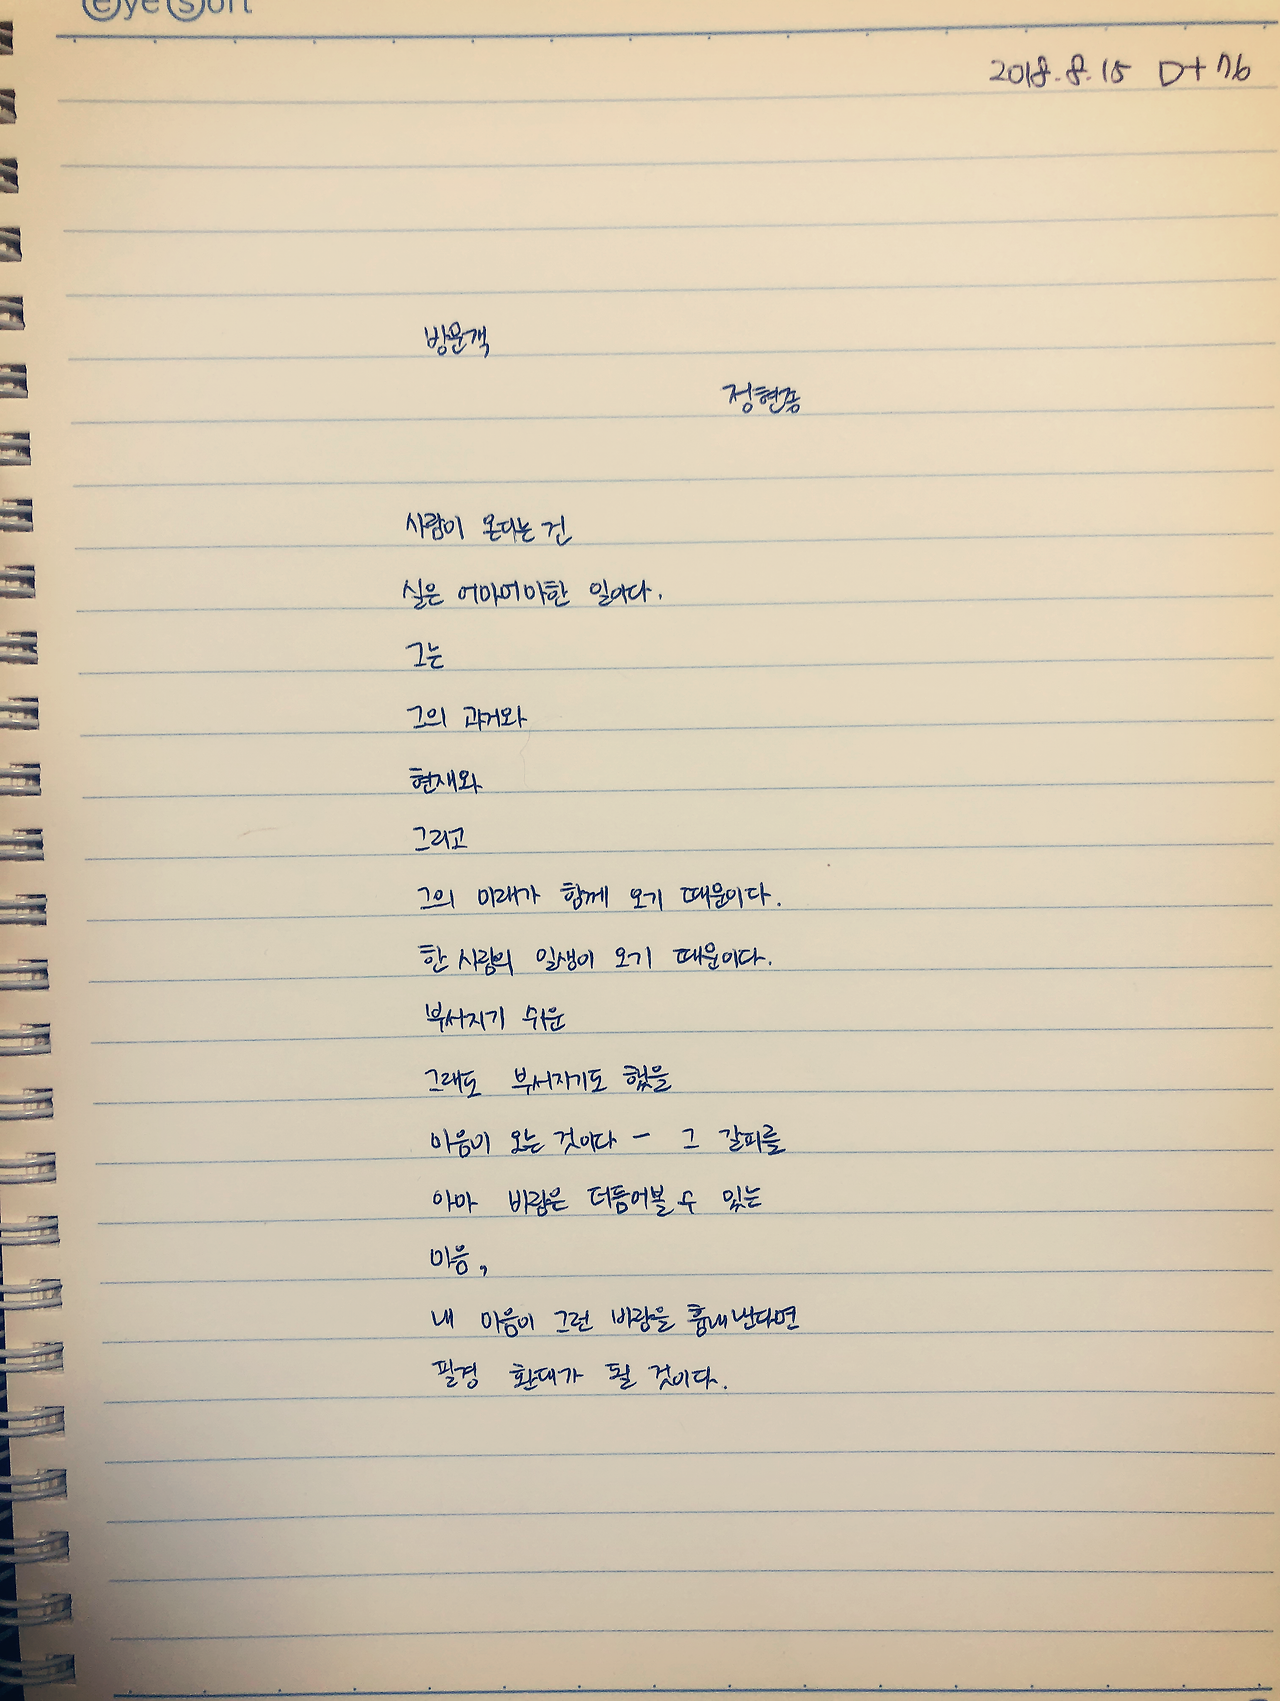 eyesoft
2018.8.15 D+76
방문객
정현종
사람이 온다는 건
실은 어마어마한 일이다.
그는
그의 과거와
현재와
그리고
그의 미래가 함께 오기 때문이다.
한 사람의 일생이 오기 때문이다.
부서지기 쉬운
그래도 부서지기도 했을
마음이 오는 것이다 - 그 갈피를
아마 바람은 더듬어볼 수 있는
마음,
내 마음이 그런 바람을 흉내낸다면
필경 환대가 될 것이다.